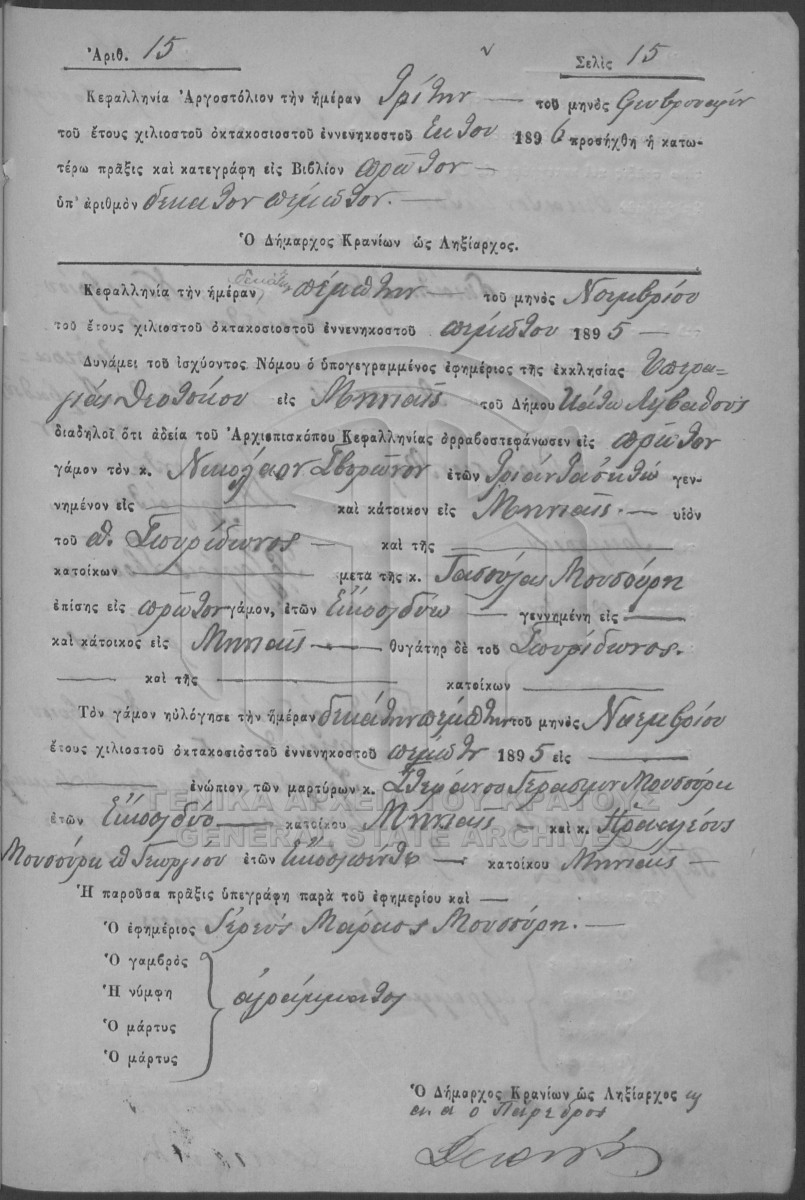 Ἀριθ. 15 Σελὶς 15
Κεφαλληνία Ἀργοστόλιον τὴν ἡμέραν Τρίτην — τοῦ μηνὸς Φευβρουαρίου
τοῦ ἔτους χιλιοστοῦ ὀκτακοσιοστοῦ ἐννενηκοστοῦ ἕκτου 1896 προσήχθη ἡ κατω-
τέρω πρᾶξις καὶ κατεγράφη εἰς Βιβλίον πρῶτον —
ὑπ' ἀριθμὸν δέκατον πέμπτον. —
Ὁ Δήμαρχος Κρανίων ὡς Ληξίαρχος.
Κεφαλληνία τὴν ἡμέραν δεκάτην πέμπτην — τοῦ μηνὸς Νοεμβρίου
τοῦ ἔτους χιλιοστοῦ ὀκτακοσιοστοῦ ἐννενηκοστοῦ πέμπτου 1895 —
Δυνάμει τοῦ ἰσχύοντος Νόμου ὁ ὑπογεγραμμένος ἐφημέριος τῆς ἐκκλησίας Ὑπερα-
γίας Θεοτόκου εἰς Μηνιαῖς τοῦ Δήμου Κάτω Λιβαθοῦς
διαδηλοῖ ὅτι ἀδεία τοῦ Ἀρχιεπισκόπου Κεφαλληνίας ἀρραβοστεφάνωσεν εἰς πρῶτον
γάμον τὸν κ. Νικόλαον Σβορῶνον ἐτῶν τριάντα ὀκτὼ γεν-
νημένον εἰς — καὶ κάτοικον εἰς Μηνιαῖς. — υἱὸν
τοῦ π. Σπυρίδωνος — καὶ τῆς —
κατοίκων — μετὰ τῆς κ. Τασούλας Μουσούρη
ἐπίσης εἰς πρῶτον γάμον, ἐτῶν εἴκοσι δύω — γεννημένη εἰς —
καὶ κάτοικος εἰς Μηνιαῖς — θυγάτηρ δὲ τοῦ Σπυρίδωνος.
— καὶ τῆς — κατοίκων —
Τὸν γάμον ηὐλόγησε τὴν ἡμέραν δεκάτην πέμπτην τοῦ μηνὸς Νοεμβρίου
ἔτους χιλιοστοῦ ὀκτακοσιοστοῦ ἐννενηκοστοῦ πέμπτου 1895 εἰς —
— ἐνώπιον τῶν μαρτύρων κ. Στεφάνου Γερασίμου Μουσούρη
ἐτῶν εἴκοσι δύο — κατοίκου Μηνιαῖς — καὶ κ. Ἡρακλέους
Μουσούρη π. Γεωργίου ἐτῶν εἴκοσι πέντε — κατοίκου Μηνιαῖς —
Ἡ παροῦσα πρᾶξις ὑπεγράφη παρὰ τοῦ ἐφημερίου καὶ —
Ὁ ἐφημέριος Ἱερεὺς Μάρκος Μουσούρης. —
Ὁ γαμβρὸς
Ἡ νύμφη ἀγράμματοι
Ὁ μάρτυς
Ὁ μάρτυς
Ὁ Δήμαρχος Κρανίων ὡς Ληξίαρχος
ὁ Πάρεδρος
ΓΕΝΙΚΑ ΑΡΧΕΙΑ ΤΟΥ ΚΡΑΤΟΥΣ
GENERAL STATE ARCHIVES